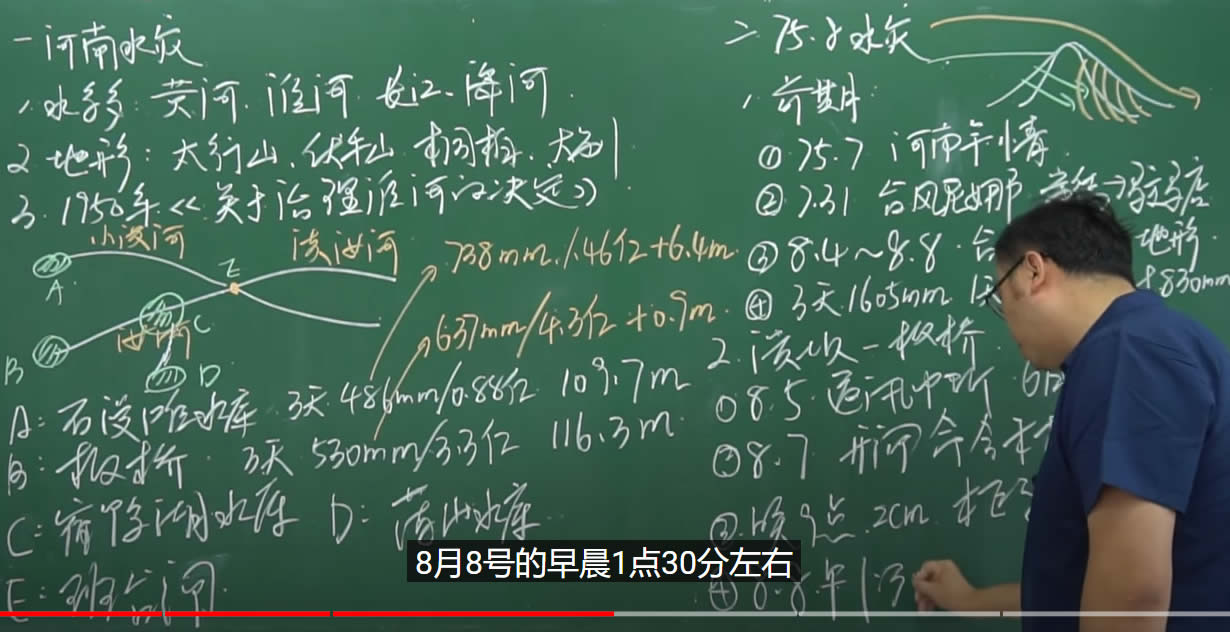 一 河南水灾
1. 水系多: 黄河. 淮河. 长江. 海河.
2. 地形: 太行山. 伏牛山. 桐柏. 大别
3. 1950年《关于治理淮河的决定》
小洪河
洪汝河
A
E
汝河
C
B
D
738mm/1.46亿+6.4m.
637mm/4.3亿 +0.9m.
A: 石漫滩水库. 3天. 486mm/0.88亿 109.7m
B: 板桥. 3天 530mm/3.3亿 116.3m
C: 宿鸭湖水库 D: 薄山水库
E: 班台河
二. 75.8水灾
1. 前期:
① 75.7 河南旱情
② 7.31 台风 驻马店
③ 8.4～8.8. 台
地形.
④ 3天. 1605mm. 1天
830mm
2. 溃坝 - 板桥.
① 8.5. 通讯中断
② 8.7.
③ 晚9点. 2cm.
④ 8.8 早1:3
8月8号的早晨1点30分左右